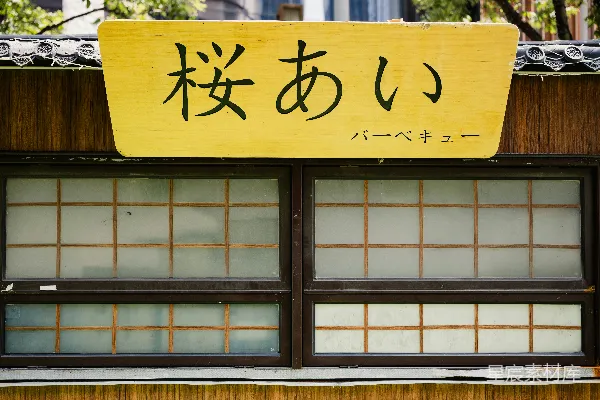 桜あい
バーベキュー
星宸素材库